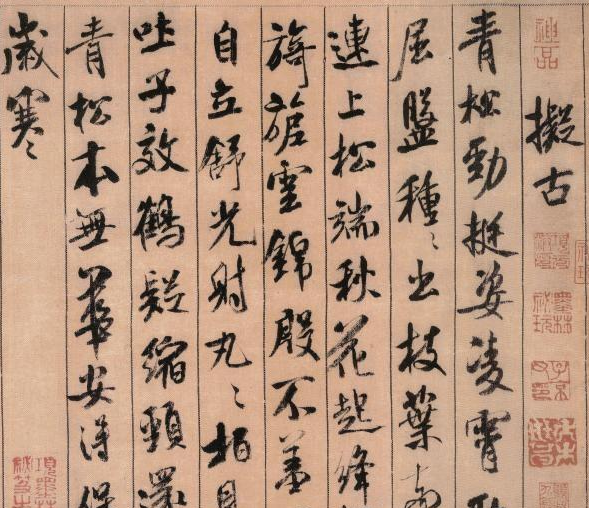 神品
擬古
青松勁挺姿凌霄恥
屈盤種〻出枝葉牽
連上松端秋花起絳
旖旎雲錦殷不羞
自立舒光射丸〻柏見
吐子效鶴疑縮頸還
青松本無華安得保
歲寒